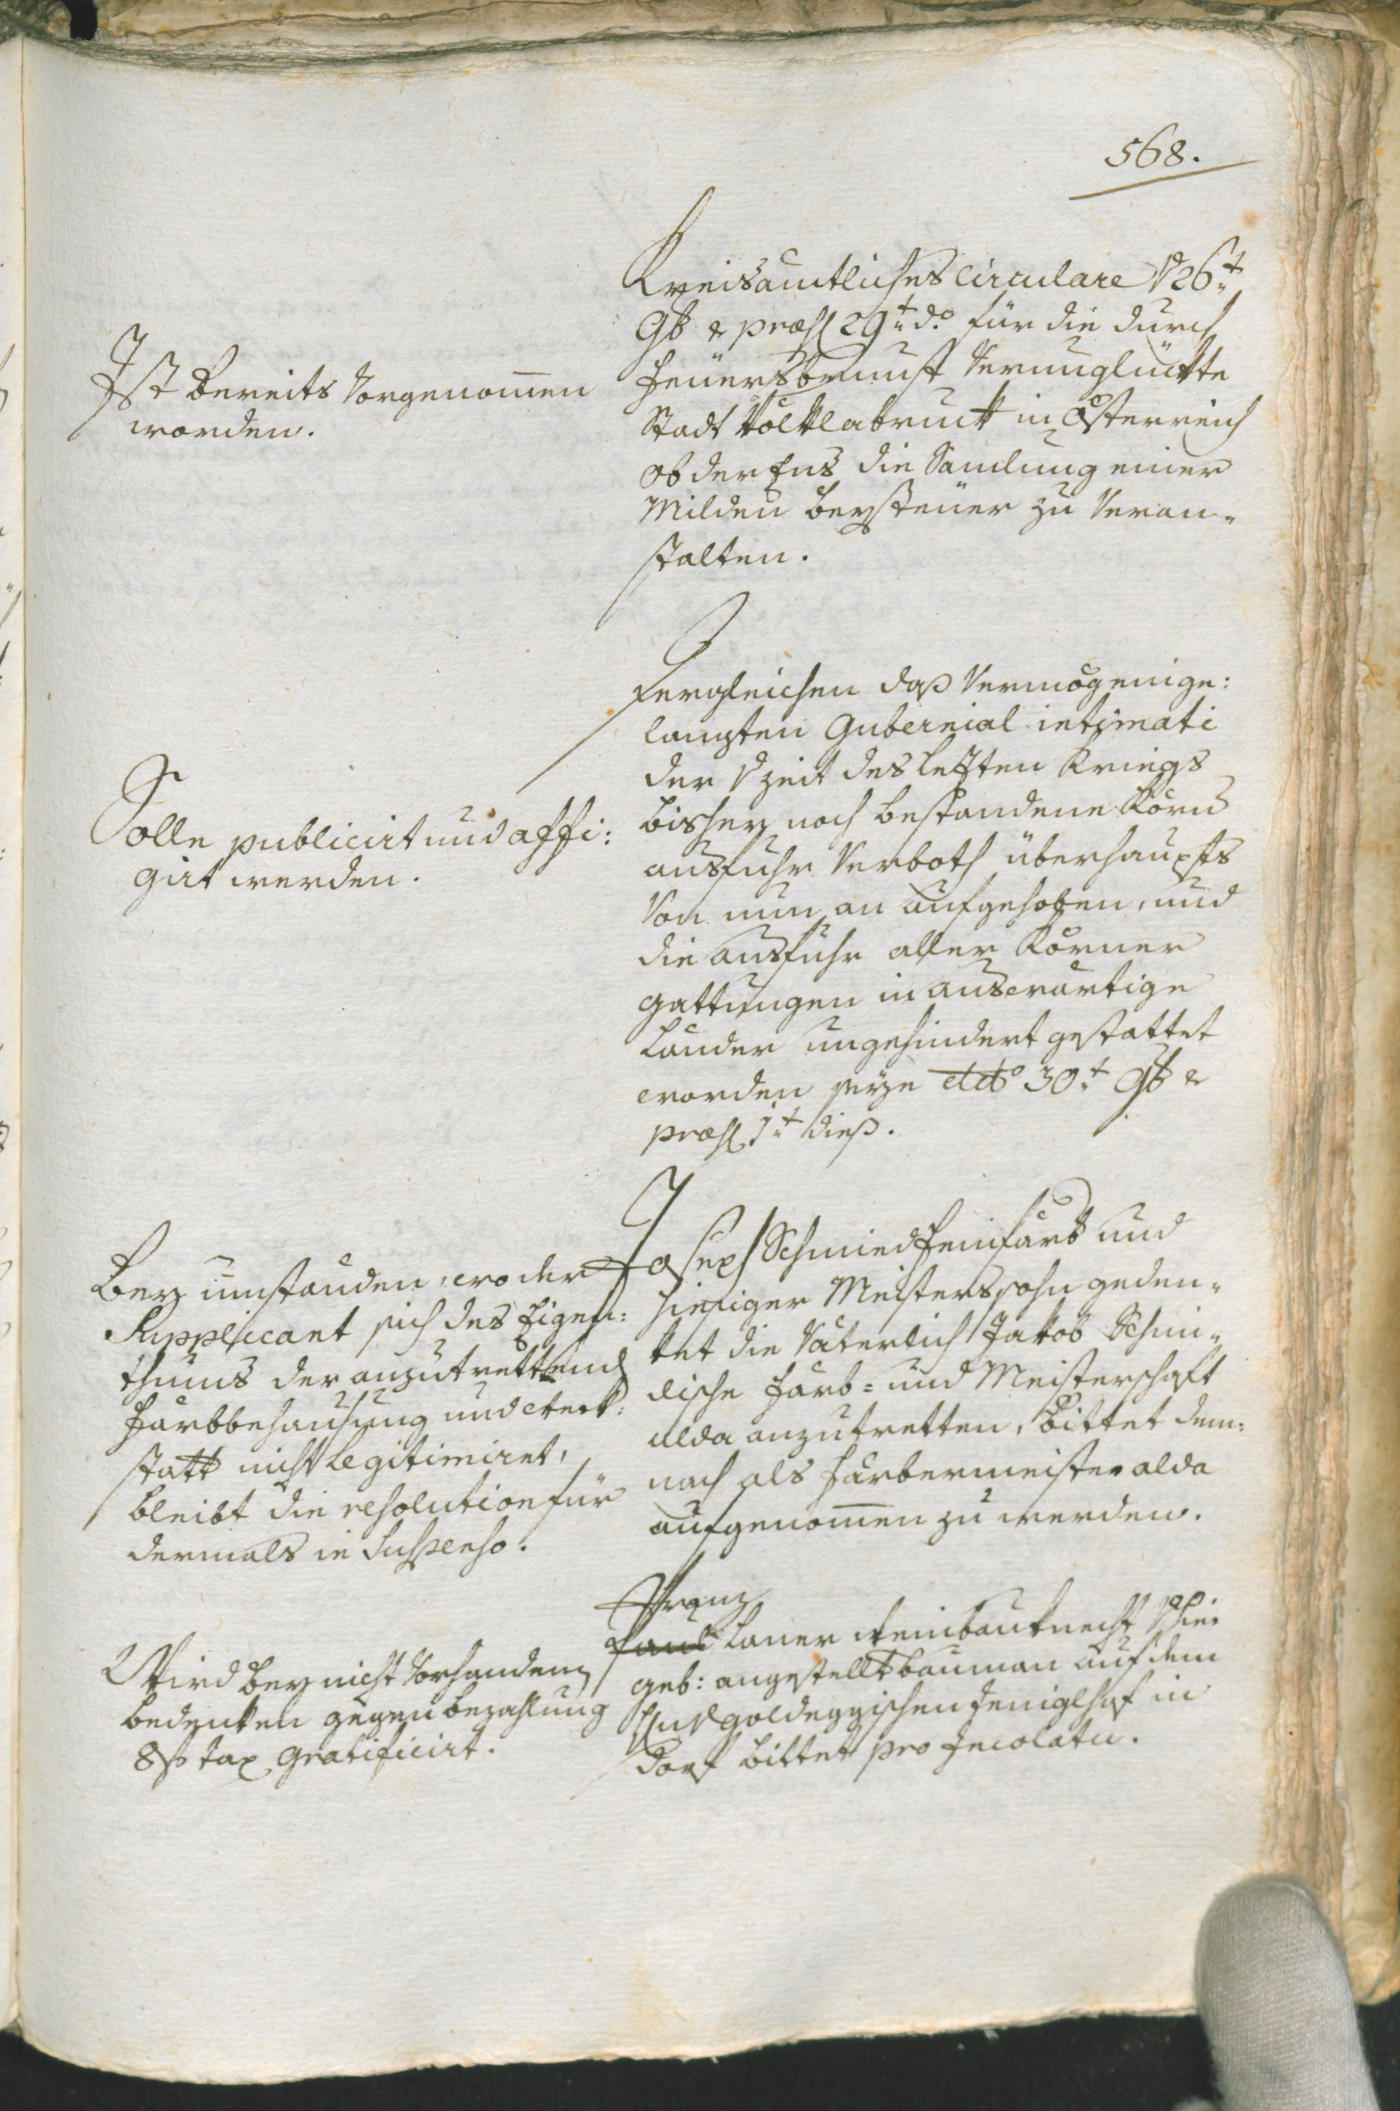 568.
Kreisamtliches Circulare 26t.
9b & præs 29t. do für die durch
Feuersbrunst Verunglückte
Stadt Volklabruck in Österreich
ob der Ens die Samlung einer
Milden beysteuer zu Veran-
stalten.
Ist bereits Vorgenommen
worden.
Dergleichen daß Vermög einge:
langten Gubernial intimati
der Zeit des Lezten Kriegs
bisher noch bestandene Körn
ausfuhr Verboth überhaupts
Von nun an aufgehoben, und
die Ausfuhr aller Körner
gattungen in auswärtige
Länder ungehindert gestattet
worden seye ddo 30t. 9b &
præs 1t. dieß.
Solle publicirt und affi:
girt werden.
Joseph Schmied Feinfärb und
hiesiger Meisterssohn geden-
ket die Väterlich Jakob Schmi-
dische Färb- und Meisterschaft
alda anzutretten, bittet dem-
nach als Färbermeister alda
aufgenommen zu werden.
Bey umständen, wo der
Supplicant sich des Eigen:
thums der anzutrettend
Färbbehausung und Werk:
statt nicht Legitimiret,
bleibt die resolution für
dermals in Suspenso.
Franz
Laner Weinbauknecht
geb: angestellt bauman auf dem
goldeggischen Heniglhof in
Dorf bittet pro Incolatu.
Wird bey nicht Vorhanden
bedenken gegen bezahlung
8f tax gratificirt.